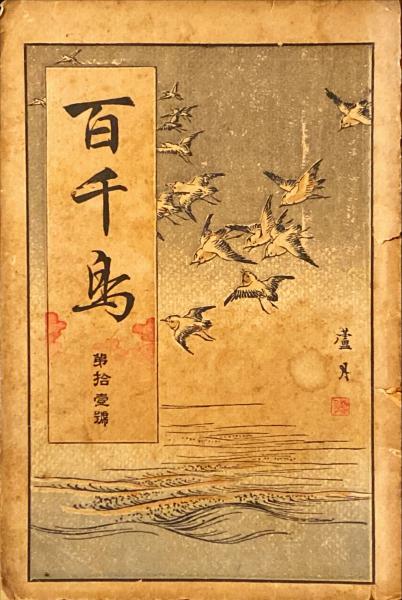 百千鳥
第拾壹號
蘆月